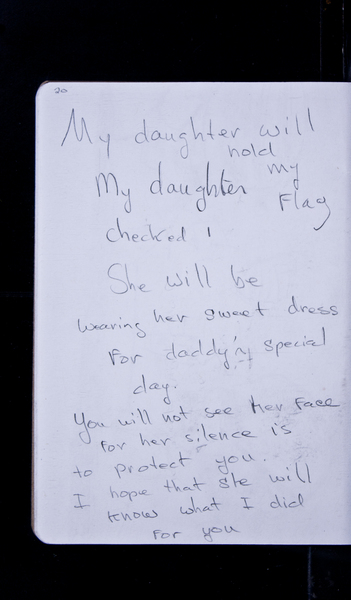 20
My daughter will
hold
My daughter my
Flag
checked !
She will be
wearing her sweet dress
For daddy's special
day.
You will not see her Face
For her silence is
to protect you.
I hope that she will
know what I did
For you